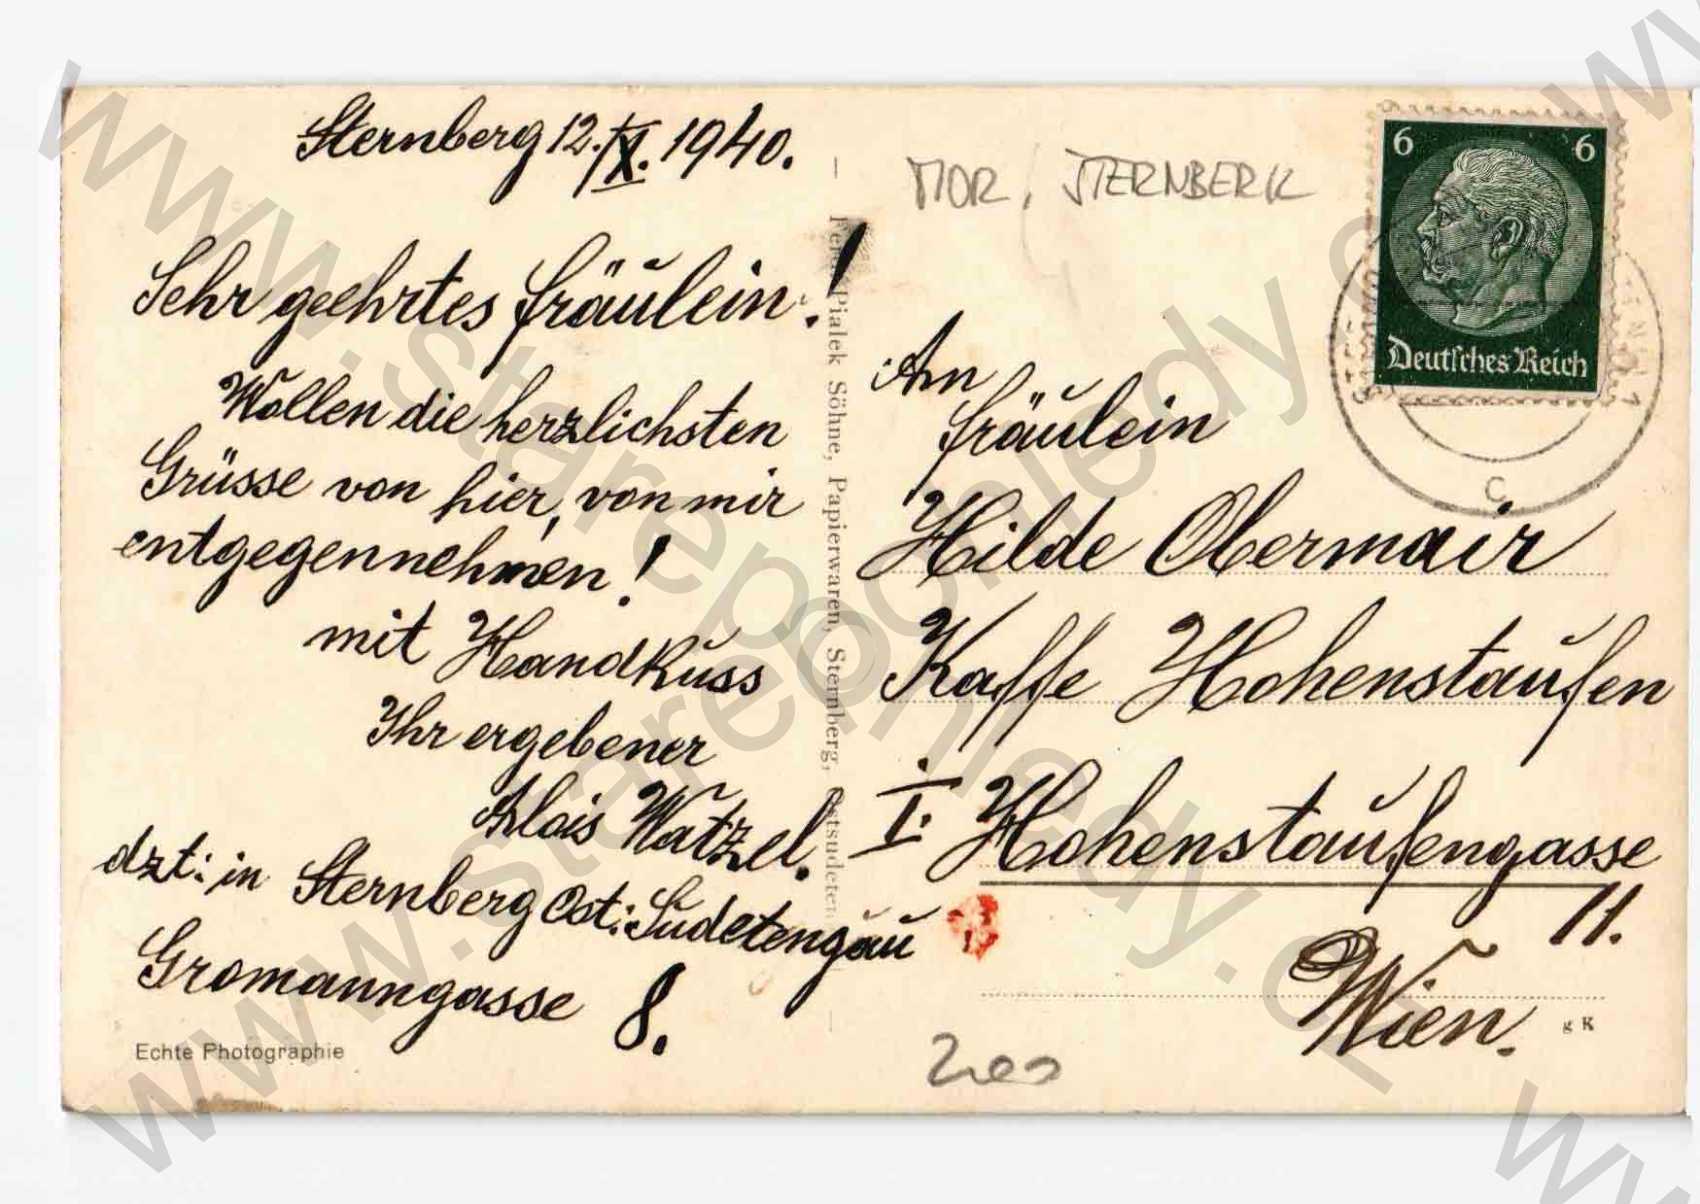 Sternberg 12./X. 1940.
Sehr geehrtes Fräulein!
Wollen die herzlichsten
Grüsse von hier, von mir
entgegennehmen!
mit Handkuss
Ihr ergebener
Alois Watzel.
dzt: in Sternberg Ost: Sudetengau
Gromanngasse 8.
Echte Photographie
Pialek Söhne, Papierwaren, Sternberg, Ostsudeten
MOR. STERNBERK
6 6
Deutsches Reich
c
An
Fräulein
Hilde Obermair
Kaffe Hohenstaufen
I. Hohenstaufengasse
11.
Wien.
g K
www.starepohledy.cz
www.starepohledy.cz